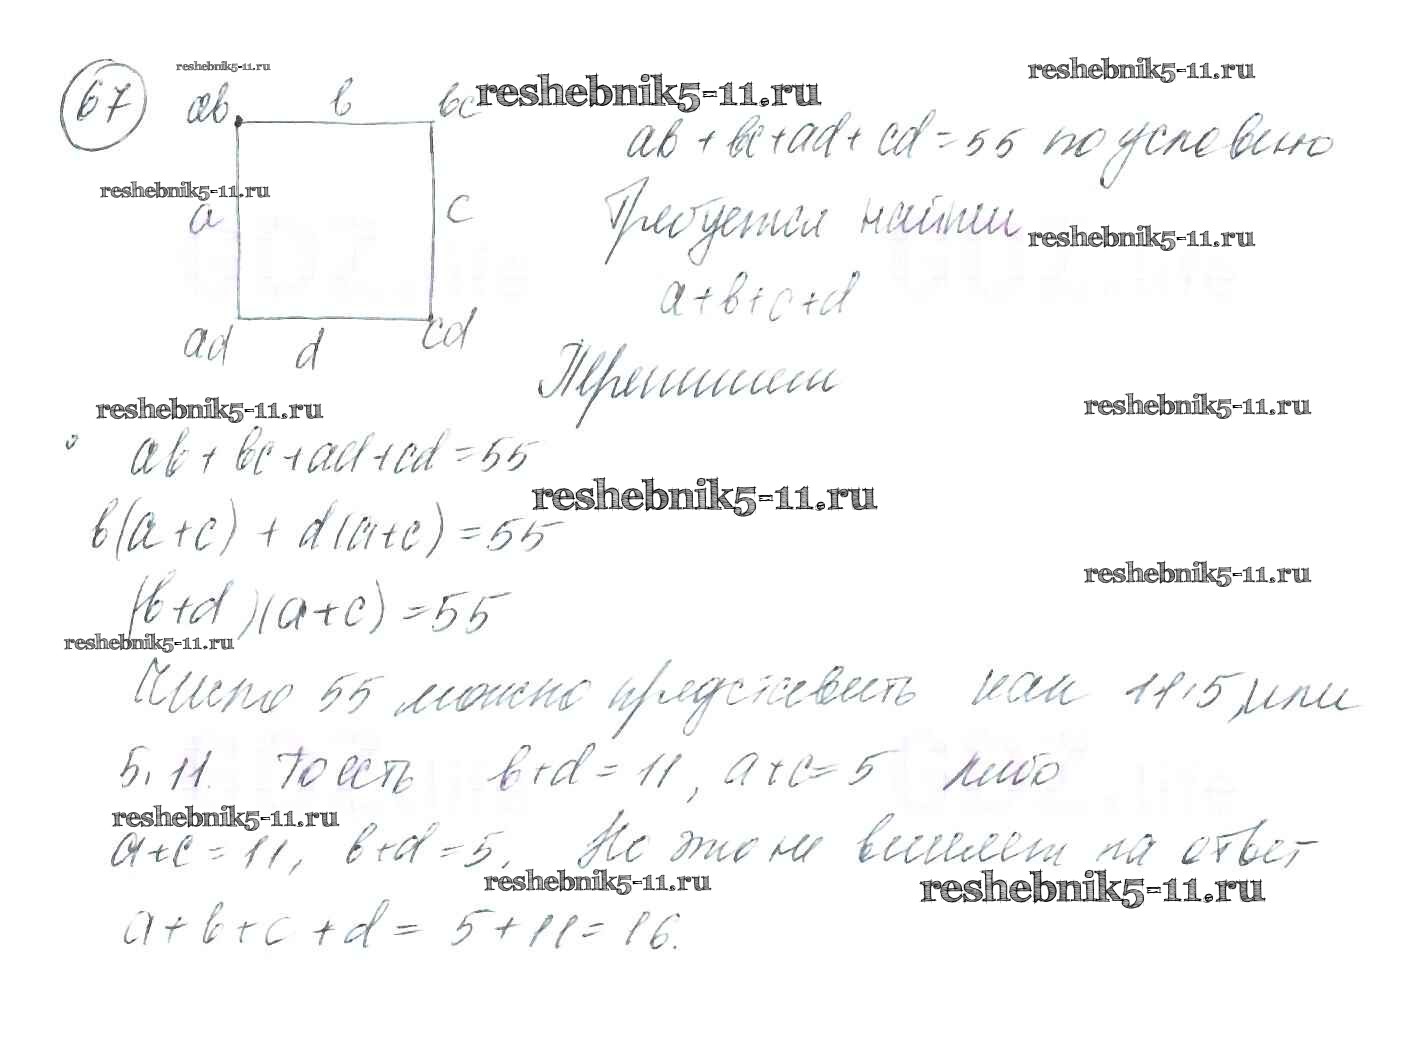 67
reshebnik5-11.ru
reshebnik5-11.ru
reshebnik5-11.ru
ab
b
bc
ab + bc + ad + cd = 55 по условию
reshebnik5-11.ru
a
c
Требуется найти
reshebnik5-11.ru
GDZ.life
GDZ.life
a + b + c + d
ad
d
cd
Перепишем
reshebnik5-11.ru
reshebnik5-11.ru
ab + bc + ad + cd = 55
reshebnik5-11.ru
b(a + c) + d(a + c) = 55
reshebnik5-11.ru
(b + d)(a + c) = 55
reshebnik5-11.ru
Число 55 можно представить как 11·5, или
5·11. То есть b + d = 11, a + c = 5 либо
GDZ.life
GDZ.life
reshebnik5-11.ru
a + c = 11, b + d = 5. Но это не влияет на ответ
reshebnik5-11.ru
reshebnik5-11.ru
a + b + c + d = 5 + 11 = 16.